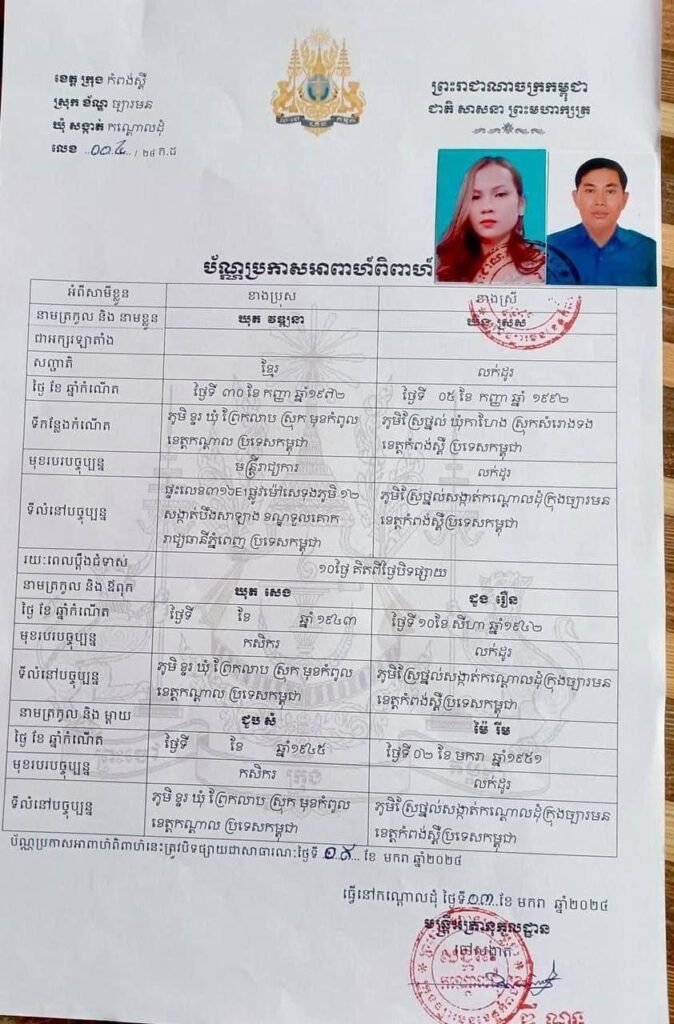 ខេត្ត ក្រុង កំពង់ស្ពឺ
ស្រុក ខ័ណ្ឌ ច្បារមន
ឃុំ សង្កាត់ កណ្តោលដុំ
លេខ ..០០៤../ ២៤ ក.ដ
ព្រះរាជាណាចក្រកម្ពុជា
ជាតិ សាសនា ព្រះមហាក្សត្រ
ប័ណ្ណប្រកាសអាពាហ៍ពិពាហ៍
អំពីសាមីខ្លួន ខាងប្រុស ខាងស្រី
នាមត្រកូល និង នាមខ្លួន ឃុត វឌ្ឍនា
ជាអក្សរឡាតាំង
សញ្ជាតិ ខ្មែរ លក់ដូរ
ថ្ងៃ ខែ ឆ្នាំកំណើត ថ្ងៃទី ៣០ ខែ កញ្ញា ឆ្នាំ១៩៧២ ថ្ងៃទី ០៥ ខែ កញ្ញា ឆ្នាំ ១៩៩២
ទីកន្លែងកំណើត ភូមិ ខ្ទរ ឃុំ ព្រែកលាប ស្រុក មុខកំពូល ភូមិស្រែថ្នល់ ឃុំកាហែង ស្រុកសំរោងទង
ខេត្តកណ្តាល ប្រទេសកម្ពុជា ខេត្តកំពង់ស្ពឺ ប្រទេសកម្ពុជា
មុខរបរបច្ចុប្បន្ន មន្ត្រីរាជ្យការ លក់ដូរ
ទីលំនៅបច្ចុប្បន្ន ផ្ទះលេខ៣១៦E១ផ្លូវម៉ៅសេទុងភូមិ ១២ ភូមិស្រែថ្នល់សង្កាត់កណ្តោលដុំក្រុងច្បារមន
សង្កាត់បឹងសាឡាង ខណ្ឌទួលគោក ខេត្តកំពង់ស្ពឺប្រទេសកម្ពុជា
រាជ្យធានីភ្នំពេញ ប្រទេសកម្ពុជា
រយៈពេលប្តឹងជំទាស់ ១០ថ្ងៃ គិតពីថ្ងៃបិទផ្សាយ
នាមត្រកូល និង ឪពុក ឃុត សេង ដួង រឿន
ថ្ងៃ ខែ ឆ្នាំកំណើត ថ្ងៃទី ខែ ឆ្នាំ ១៩៤៣ ថ្ងៃទី ១០ខែ សីហា ឆ្នាំ១៩៤២
មុខរបរបច្ចុប្បន្ន កសិករ លក់ដូរ
ទីលំនៅបច្ចុប្បន្ន ភូមិ ខ្ទរ ឃុំ ព្រែកលាប ស្រុក មុខកំពូល ភូមិស្រែថ្នល់សង្កាត់កណ្តោលដុំក្រុងច្បារមន
ខេត្តកណ្តាល ប្រទេសកម្ពុជា ខេត្តកំពង់ស្ពឺប្រទេសកម្ពុជា
នាមត្រកូល និង ម្តាយ ជួប សំ ម៉ៃ រីម
ថ្ងៃ ខែ ឆ្នាំកំណើត ថ្ងៃទី ខែ ឆ្នាំ១៩៤៥ ថ្ងៃទី ០២ ខែ មករា ឆ្នាំ១៩៥១
មុខរបរបច្ចុប្បន្ន កសិករ លក់ដូរ
ទីលំនៅបច្ចុប្បន្ន ភូមិ ខ្ទរ ឃុំ ព្រែកលាប ស្រុក មុខកំពូល ភូមិស្រែថ្នល់សង្កាត់កណ្តោលដុំក្រុងច្បារមន
ខេត្តកណ្តាល ប្រទេសកម្ពុជា ខេត្តកំពង់ស្ពឺប្រទេសកម្ពុជា
ប័ណ្ណប្រកាសអាពាហ៍ពិពាហ៍នេះត្រូវបិទផ្សាយជាសាធារណៈថ្ងៃទី ខែ មករា ឆ្នាំ២០២៤
ធ្វើនៅកណ្តោលដុំ ថ្ងៃទី.១៣..ខែ មករា ឆ្នាំ២០២៤
មន្ត្រីអត្រានុកូលដ្ឋាន
ចៅសង្កាត់